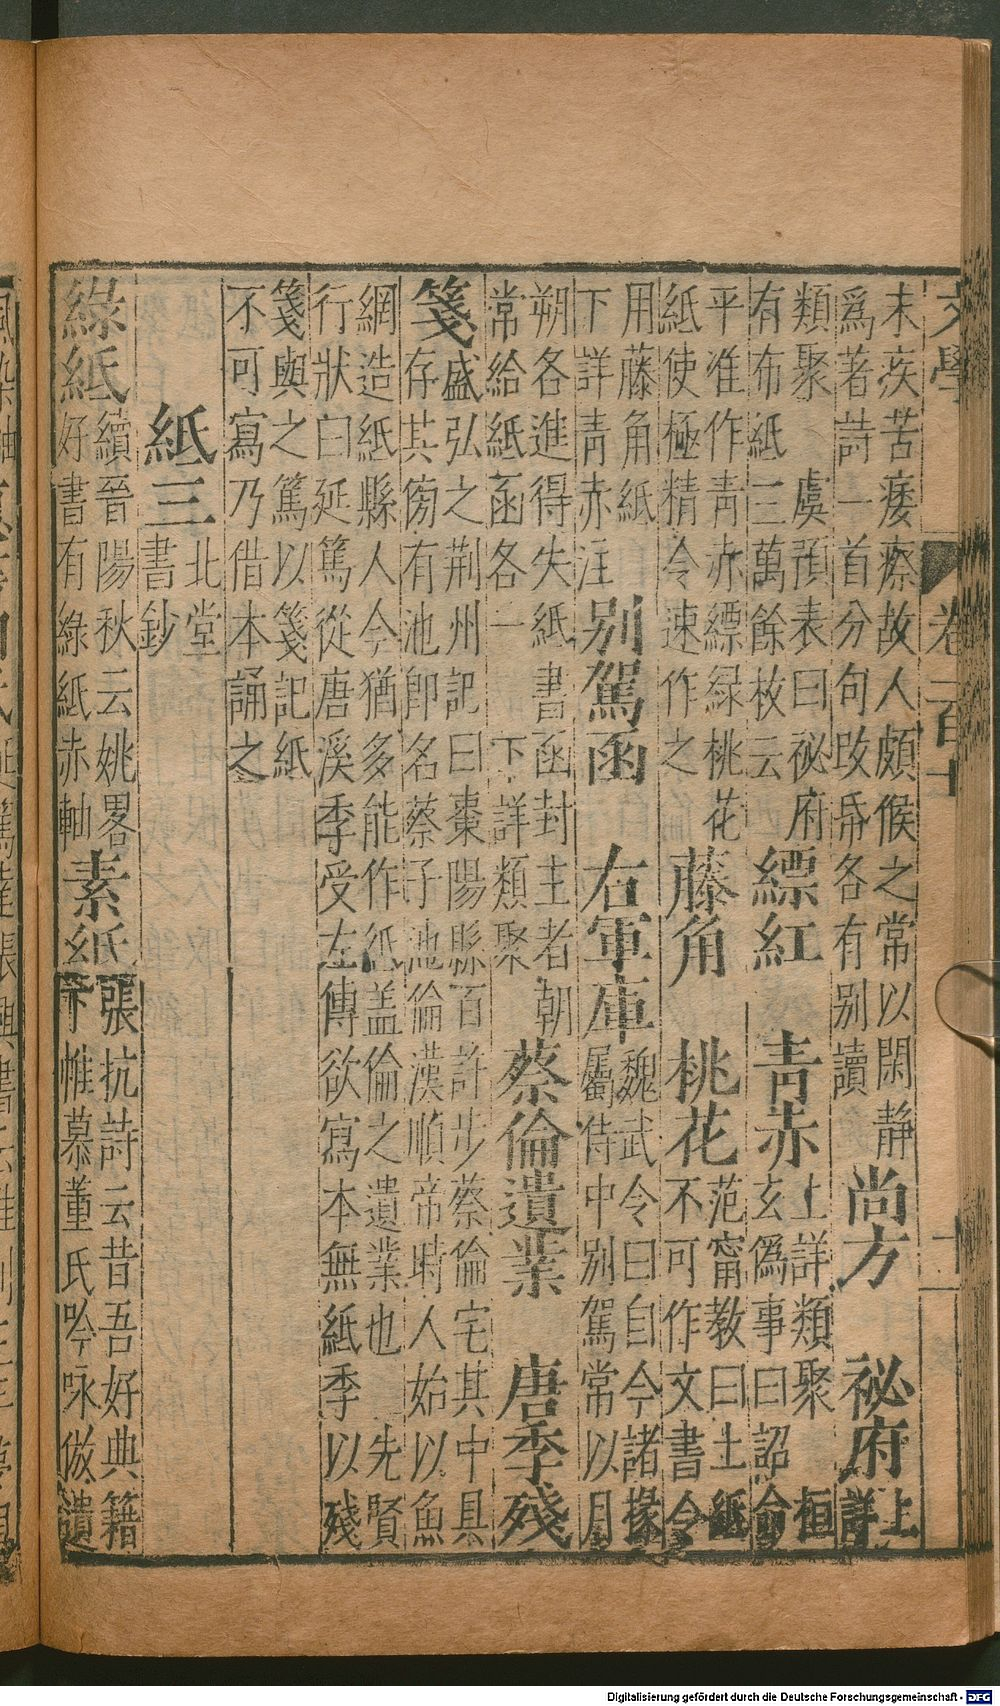 文學 卷
末疾苦痿瘵故人頗候之常以閑静
爲著詩一首分句改帋各有别讀
尚方 祕府
上
詳
類聚 虞預表曰祕府
有布紙三萬餘枚云
縹紅 青赤
上詳類聚 桓
玄僞事曰詔命
平准作青赤縹緑桃花
紙使極精令速作之
藤角 桃花
范甯教曰土紙
不可作文書令
用藤角紙
下詳青赤注
别駕函 右軍庫
魏武令曰自今諸掾
屬侍中别駕常以月
朔各進得失紙書函封主者朝
常給紙函各一 下詳類聚
蔡倫遺業 唐季殘
箋
盛弘之荆州記曰棗陽縣百許步蔡倫宅其中具
存其傍有池即名蔡子池倫漢順帝時人始以魚
網造紙縣人今猶多能作紙盖倫之遺業也 先賢
行狀曰延篤從唐溪季受左傳欲寫本無紙季以殘
箋與之篤以箋記紙
不可寫乃借本誦之
紙三
北堂
書鈔
緑紙
續晉陽秋云姚畧
好書有緑紙赤軸
素紙
張抗詩云昔吾好典籍
下帷慕董氏吟咏倣遺
Digitalisierung gefördert durch die Deutsche Forschungsgemeinschaft - DFG